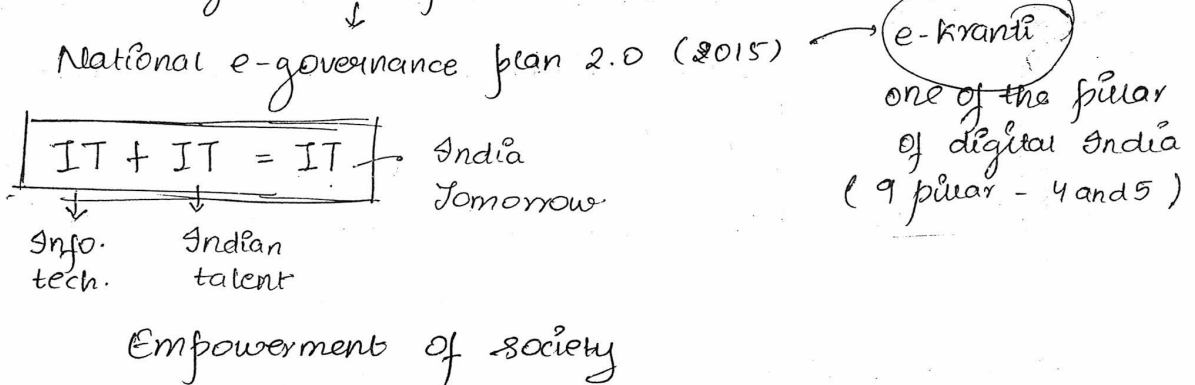 National e-governance plan 2.0 (2015)
e-kranti
one of the pillar
of digital India
(9 pillar - 4 and 5)
IT + IT = IT
India
Tomorrow
Info.
tech.
Indian
talent
Empowerment of society